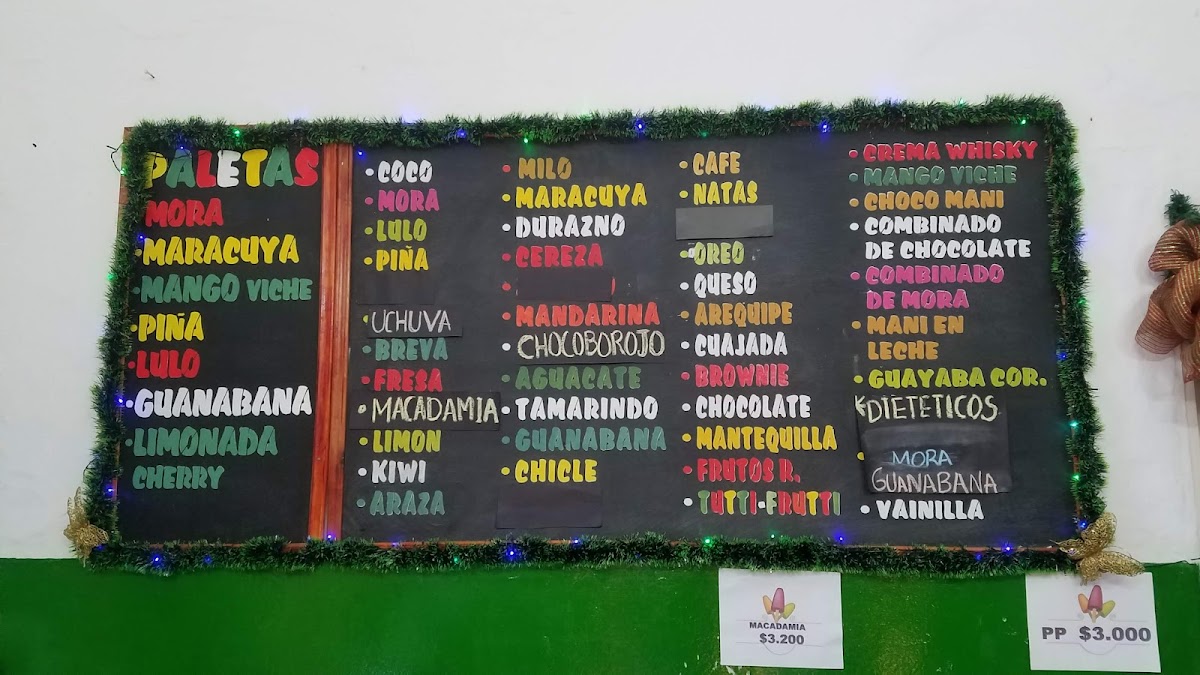 PALETAS
MORA
MARACUYA
MANGO VICHE
PIÑA
LULO
GUANABANA
LIMONADA
CHERRY
COCO
MORA
LULO
PIÑA
UCHUVA
BREVA
FRESA
MACADAMIA
LIMON
KIWI
ARAZA
MILO
MARACUYA
DURAZNO
CEREZA
MANDARINA
CHOCOBOROJO
AGUACATE
TAMARINDO
GUANABANA
CHICLE
CAFE
NATAS
OREO
QUESO
AREQUIPE
CUAJADA
BROWNIE
CHOCOLATE
MANTEQUILLA
FRUTOS R.
TUTTI-FRUTTI
CREMA WHISKY
MANGO VICHE
CHOCO MANI
COMBINADO
DE CHOCOLATE
COMBINADO
DE MORA
MANI EN
LECHE
GUAYABA COR.
DIETETICOS
MORA
GUANABANA
VAINILLA
MACADAMIA
$3.200
PP $3.000